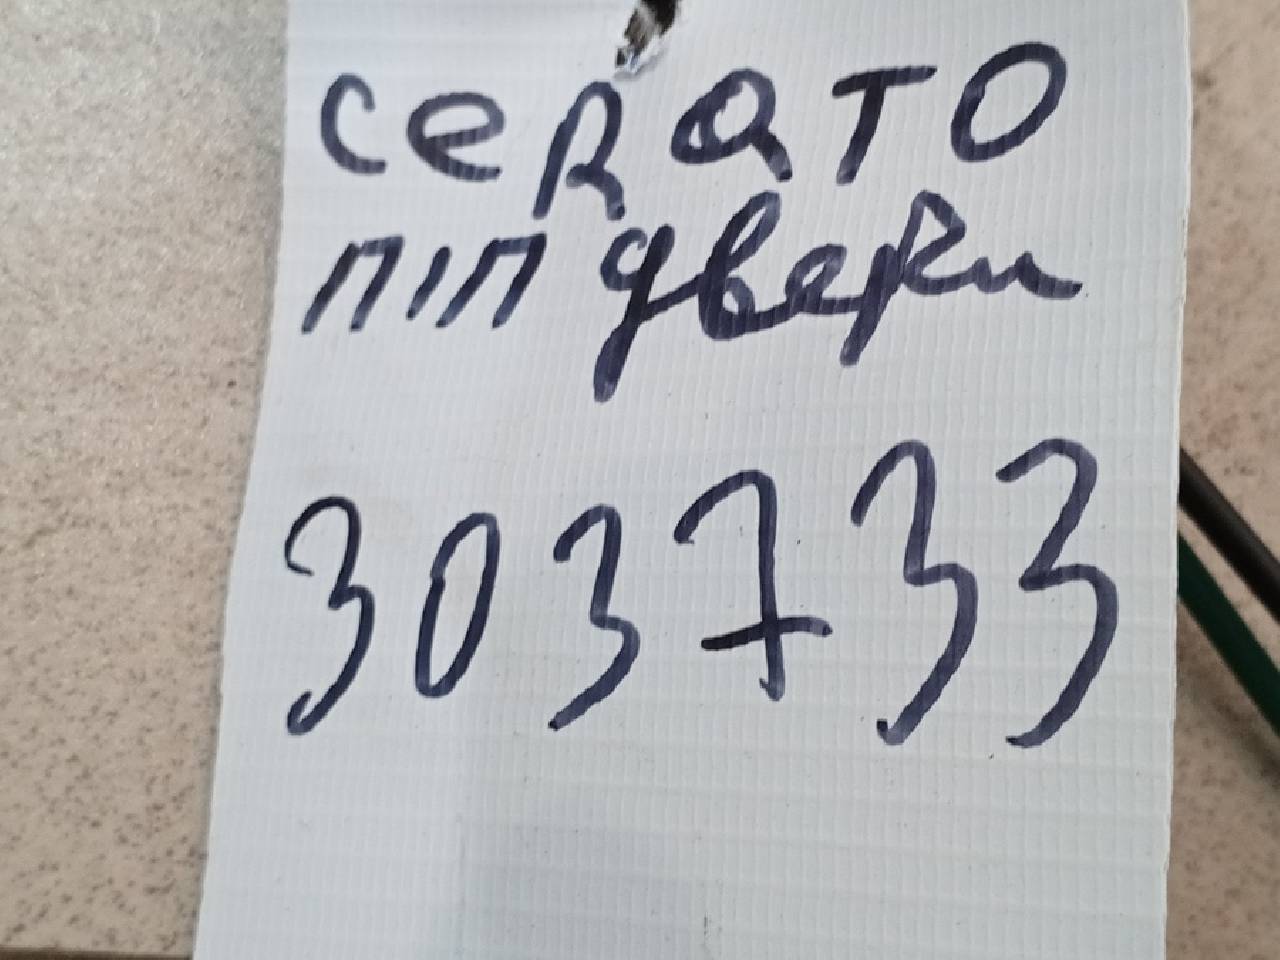 сеRаTO
п/п двери
303733